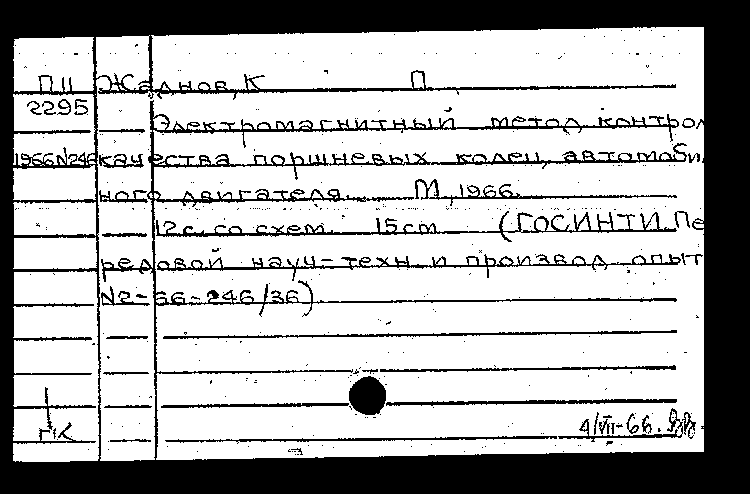 П II Жаднов, К П.
2295
Электромагнитный метод контрол
1966 N246 качества поршневых колец автомобил
ного двигателя. М., 1966.
12 с. со схем. 15 см (ГОСИНТИ. Пе
редовой науч-техн и производ опыт
N2-66-246/36)
4/VII-66.